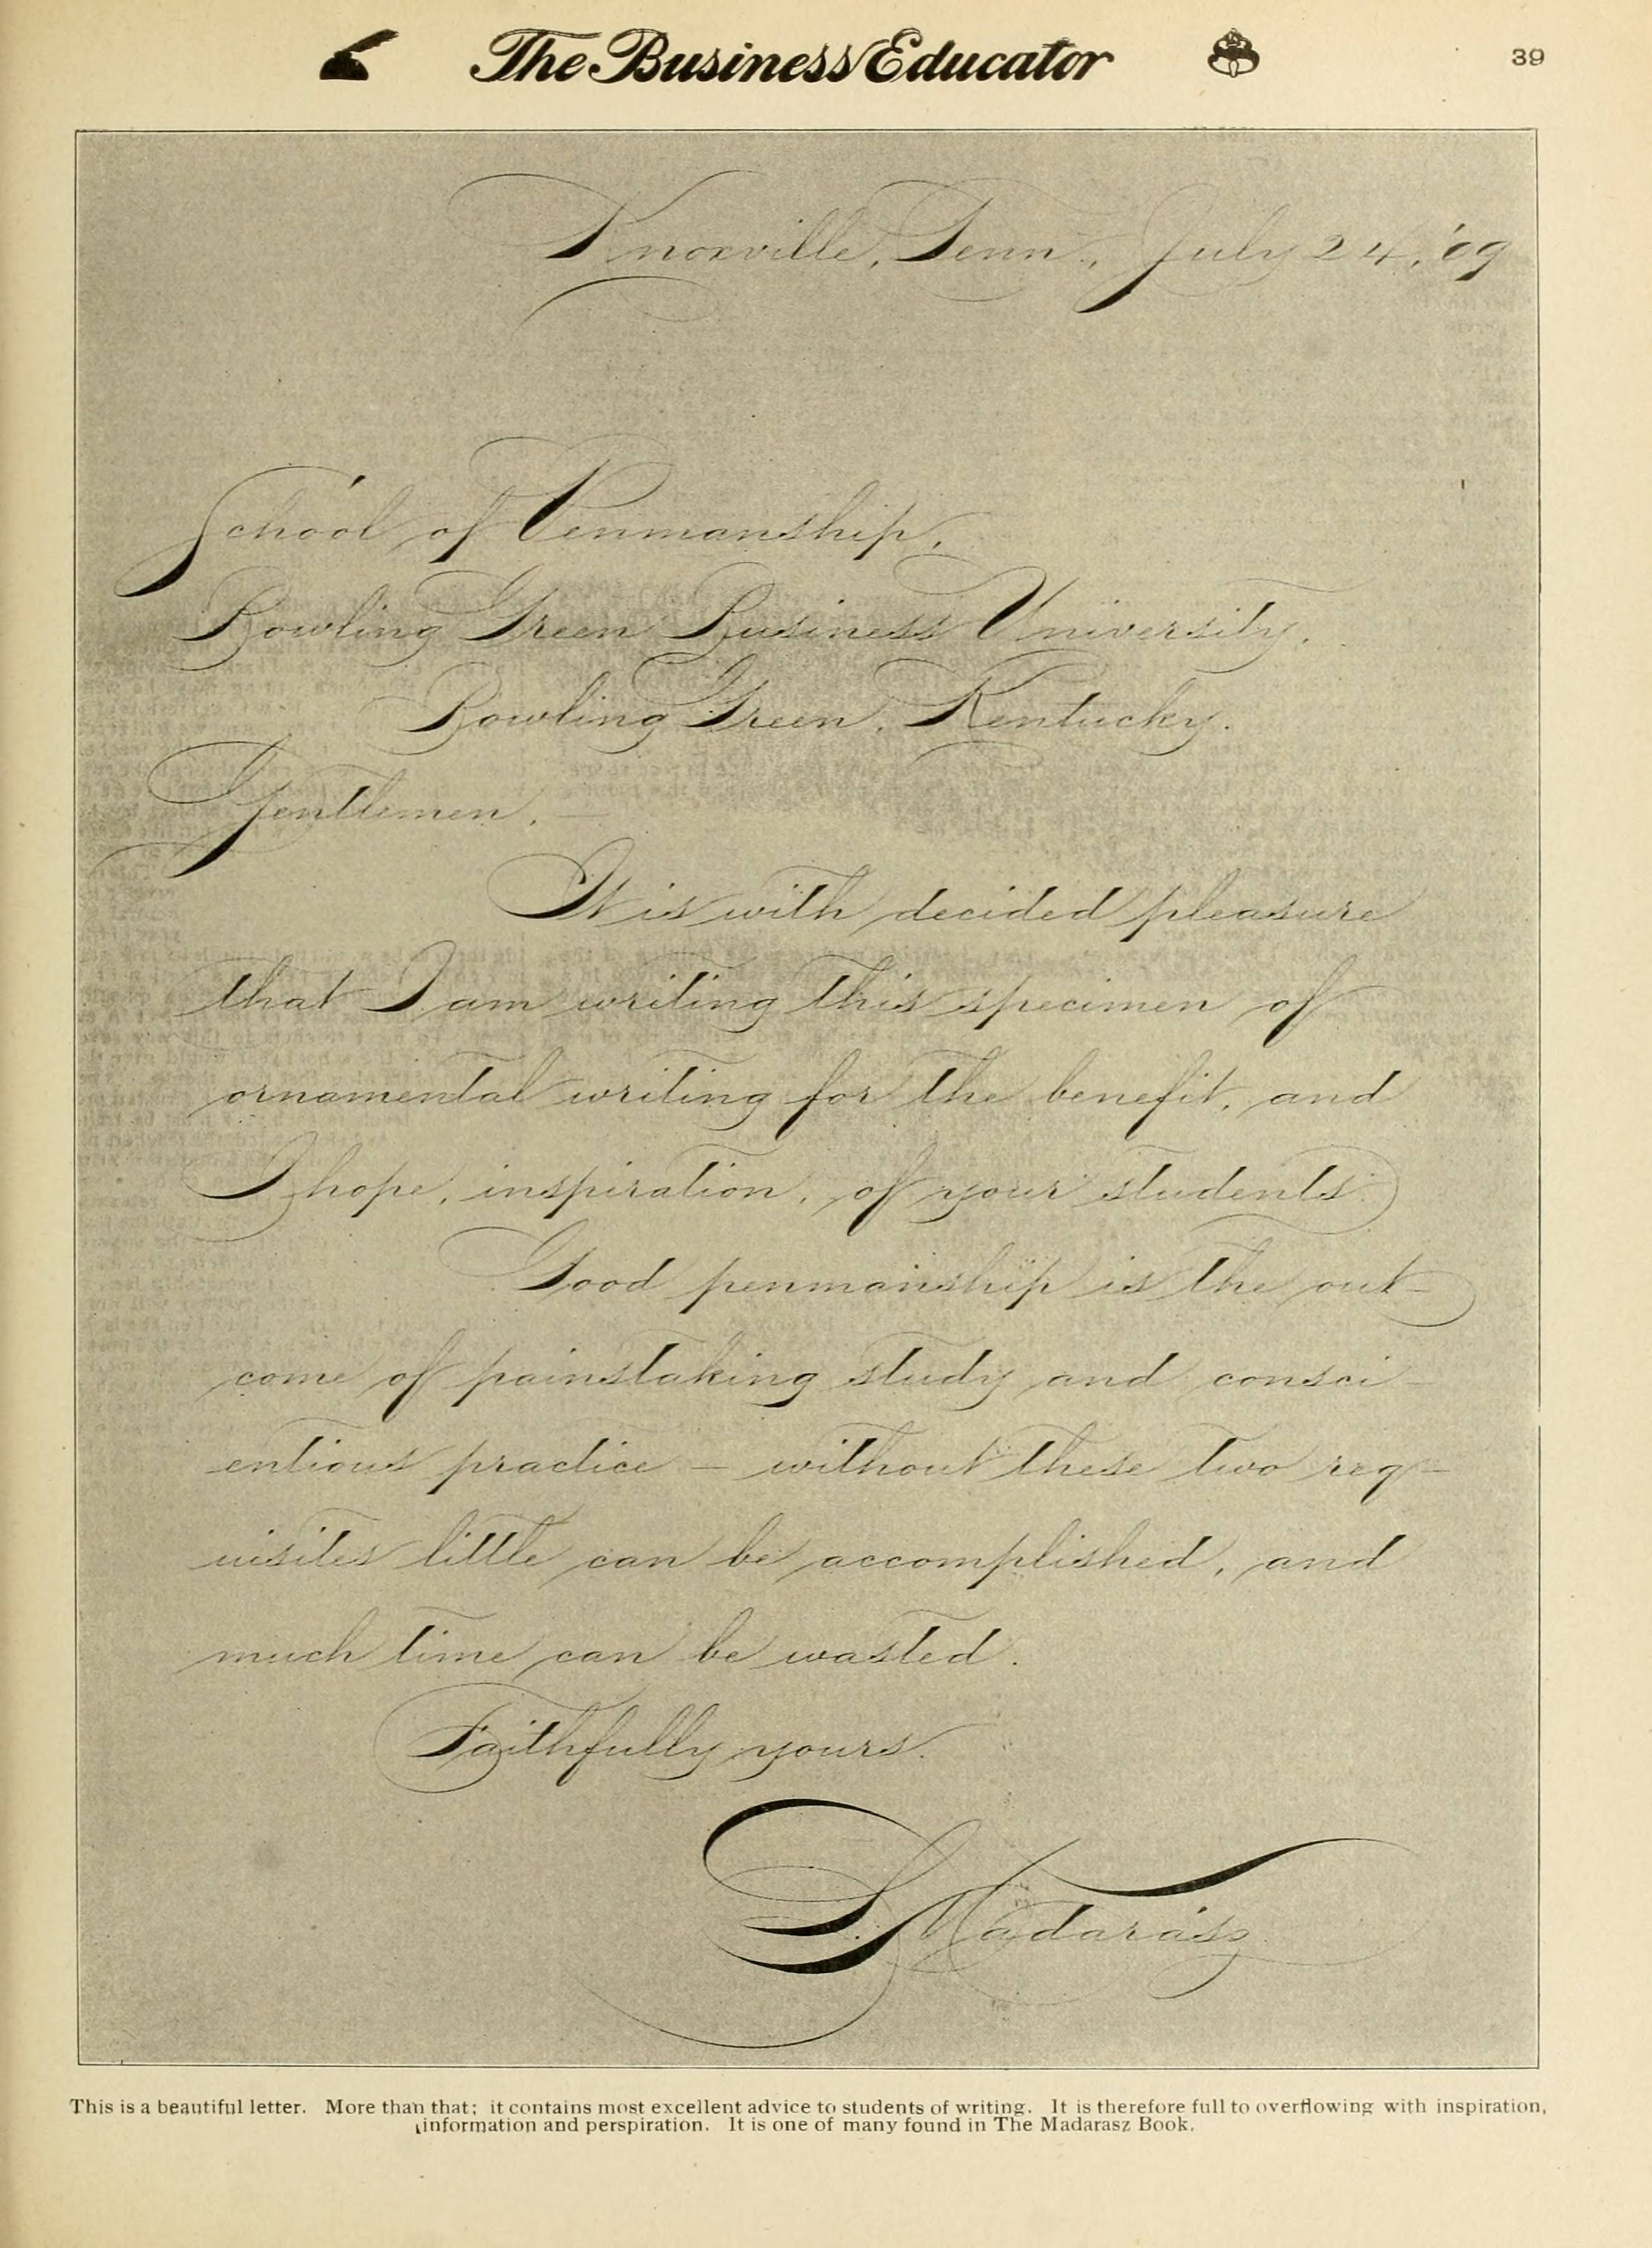 The Business Educator 39
Knoxville, Tenn., July 24, '09
School of Penmanship,
Bowling Green Business University,
Bowling Green, Kentucky.
Gentlemen, —
It is with decided pleasure
that I am writing this specimen of
ornamental writing for the benefit, and
I hope, inspiration, of your students.
Good penmanship is the out-
come of painstaking study and consci-
entious practice — without these two req-
uisites little can be accomplished, and
much time can be wasted.
Faithfully yours.
L Madarasz
This is a beautiful letter. More than that; it contains most excellent advice to students of writing. It is therefore full to overflowing with inspiration,
information and perspiration. It is one of many found in The Madarasz Book.